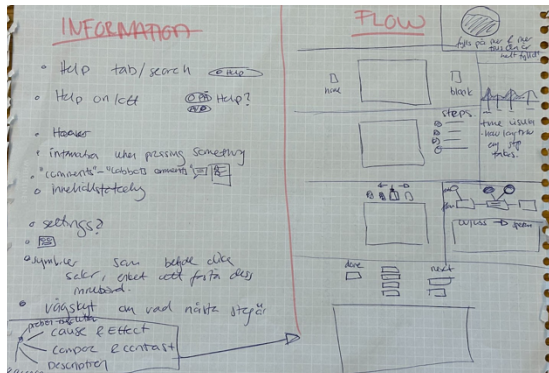 INFORMATION
Help tab/search
Help on/off Help?
Hoover
information when pressing something
"comments" -
innehållsförteckning
settings?
symboler som betyder olika
saker, enkelt att förstå dess
innebörd.
vägskylt om vad nästa steg är
cause & Effect
compare & contrast
Description
FLOW
fylls på mer & mer
helt fylld
home
book
steps
time visual
how long time
steg
takes.
done
next